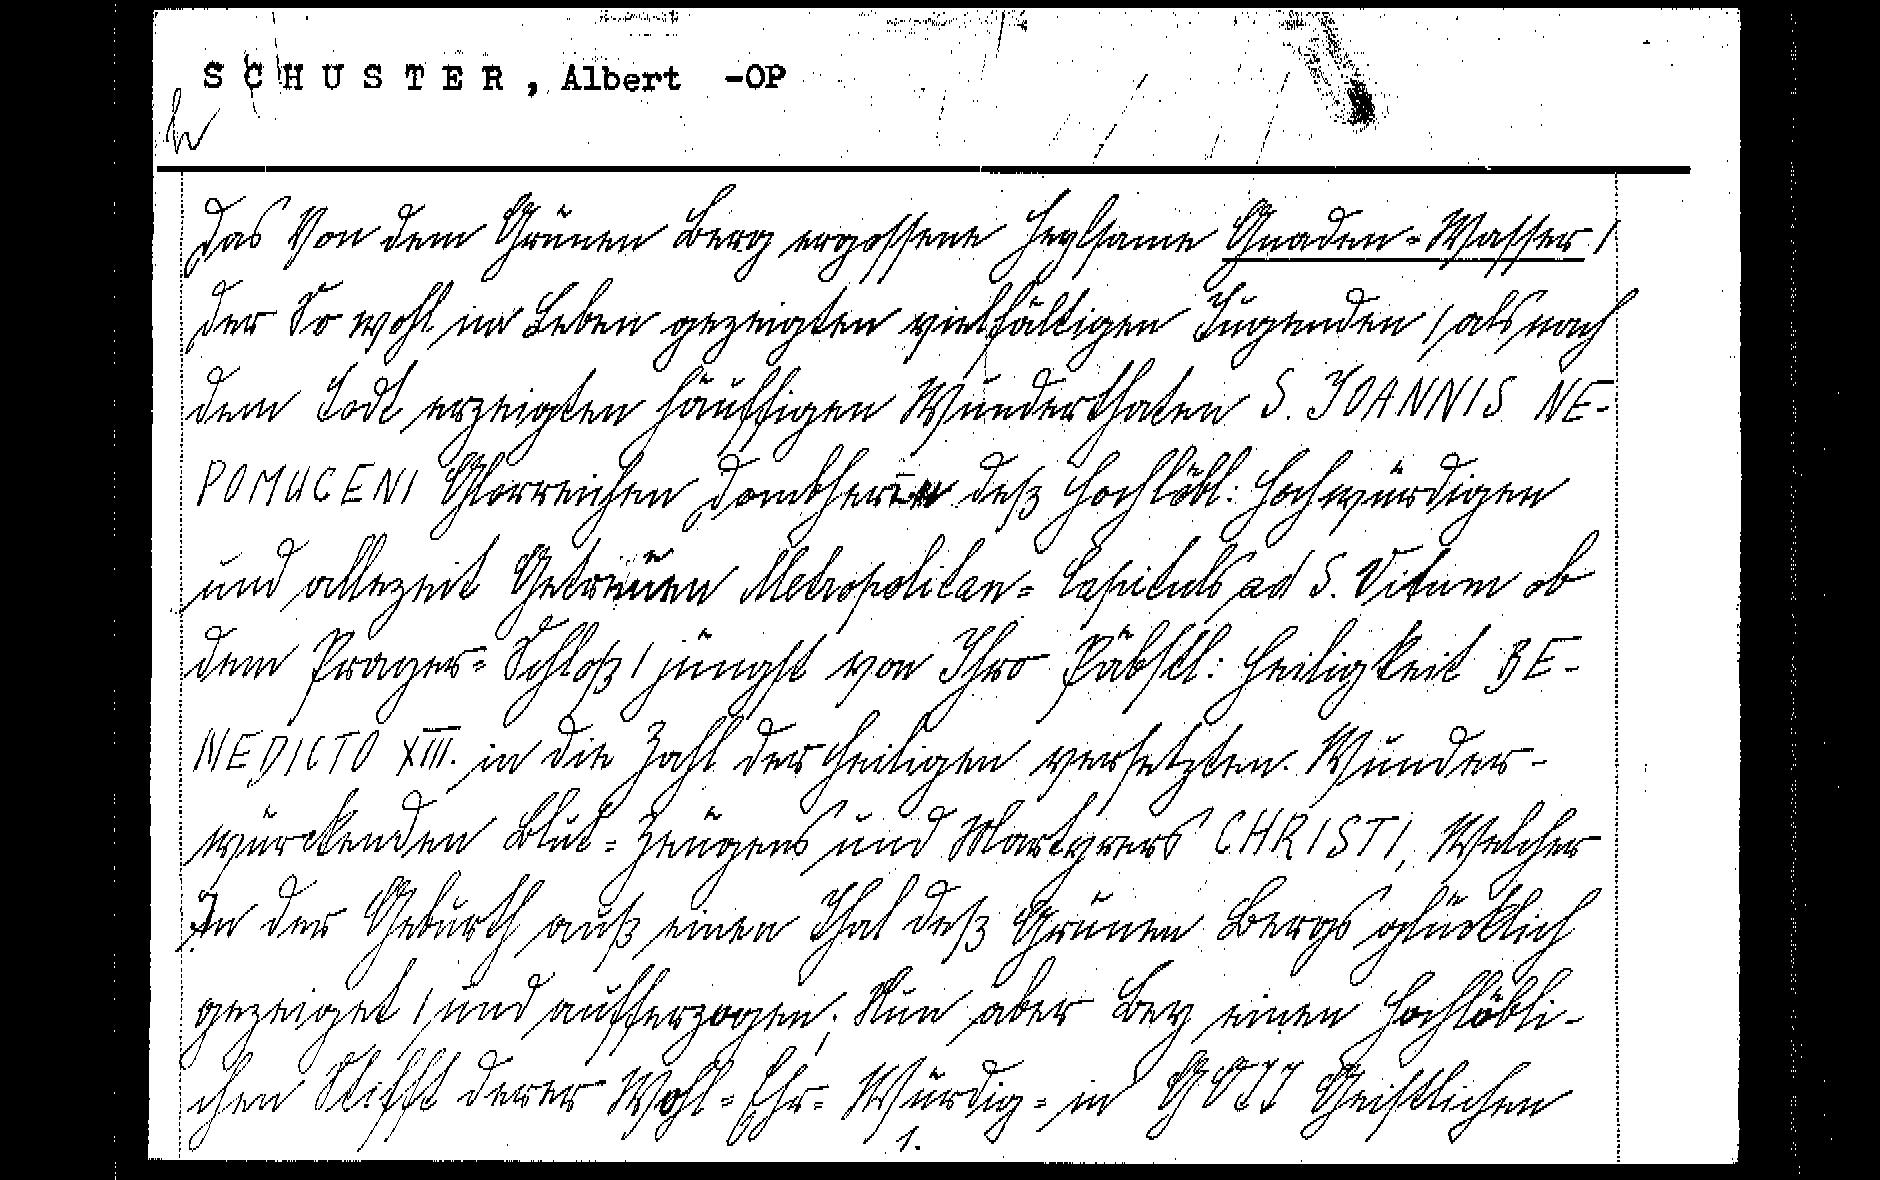 SCHUSTER, Albert -OP
Das Von dem Grünen Berg ergossene Heylsame Gnaden-Wasser /
der So wohl im Leben gezeigten vielfältigen Tugenden / als nach
dem Todt erzeigten häuffigen Wunderthaten S. JOANNIS NE-
POMUCENI Glorreichen Dombherrn deß Hochlöbl: Hochwürdigen
und allezeit Getreuen Metropolitan= Capituls ad S. Vitum ob
dem Prager= Schloß / jüngst von Ihro Päbstl: Heiligkeit BE-
NEDICTO XIII. in die Zahl der Heiligen versetzten. Wunder-
würckenden Blut= Zeugens und Martyrers CHRISTI, Welcher
In der Geburth auß einen Thal deß Grünen Bergs glücklich
gezeiget / und aufferzogen; Nun aber Bey einen Hochlöbli-
chen Stifft derer Wohl= Ehr= Würdig= in GOTT Geistlichen
1.